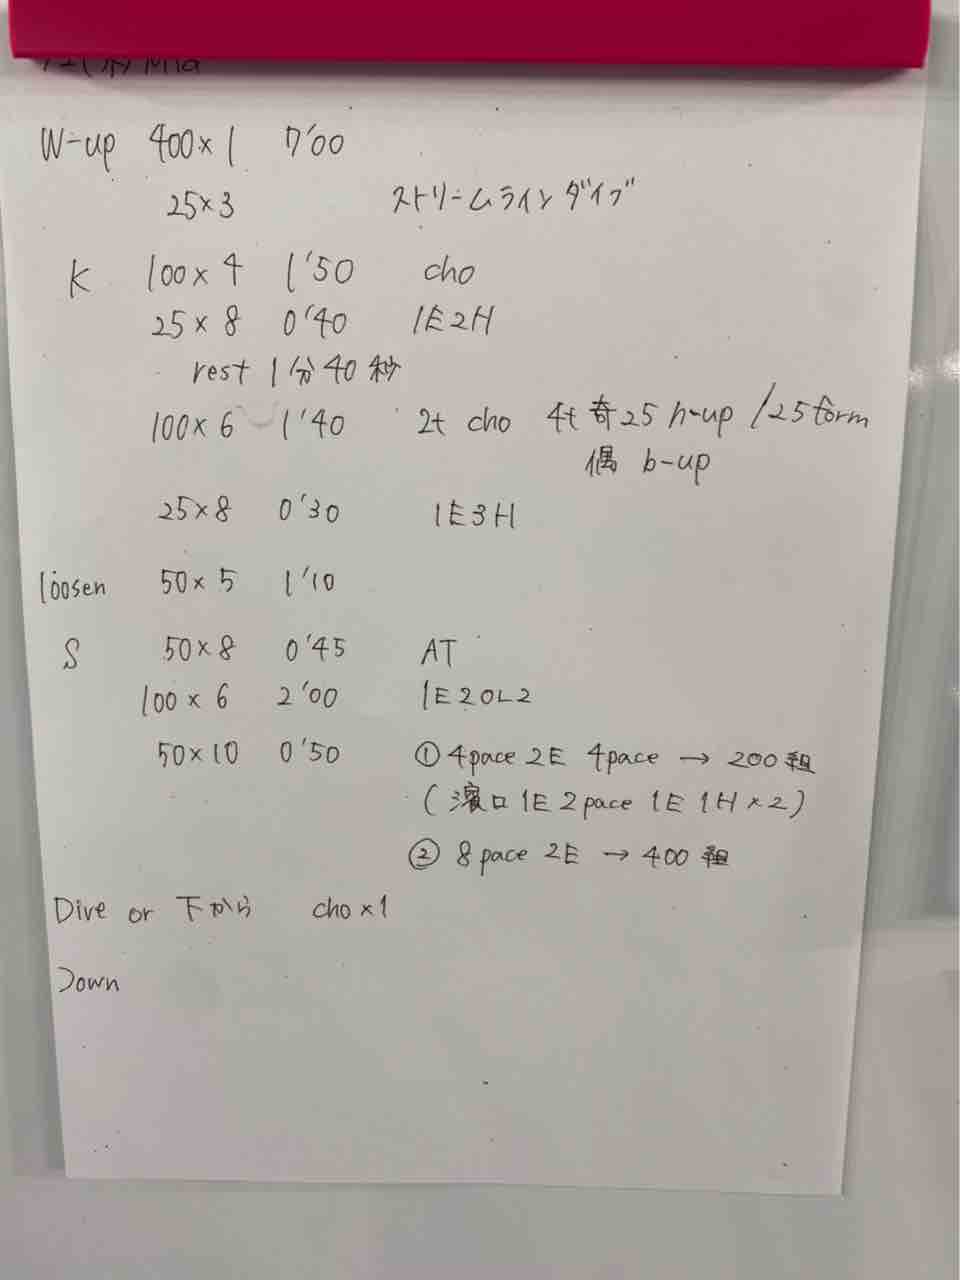 W-up 400×1 7'00
25×3 ストリームラインダイブ
K 100×4 1'50 cho
25×8 0'40 1E2H
rest 1分40秒
100×6 1'40 2t cho 4t 奇25 h-up /25form
偶 b-up
25×8 0'30 1E3H
loosen 50×5 1'10
S 50×8 0'45 AT
100×6 2'00 1E20L2
50×10 0'50 ① 4pace 2E 4pace → 200組
(濱口 1E 2pace 1E 1H×2)
② 8pace 2E → 400組
Dive or 下から cho×1
Down